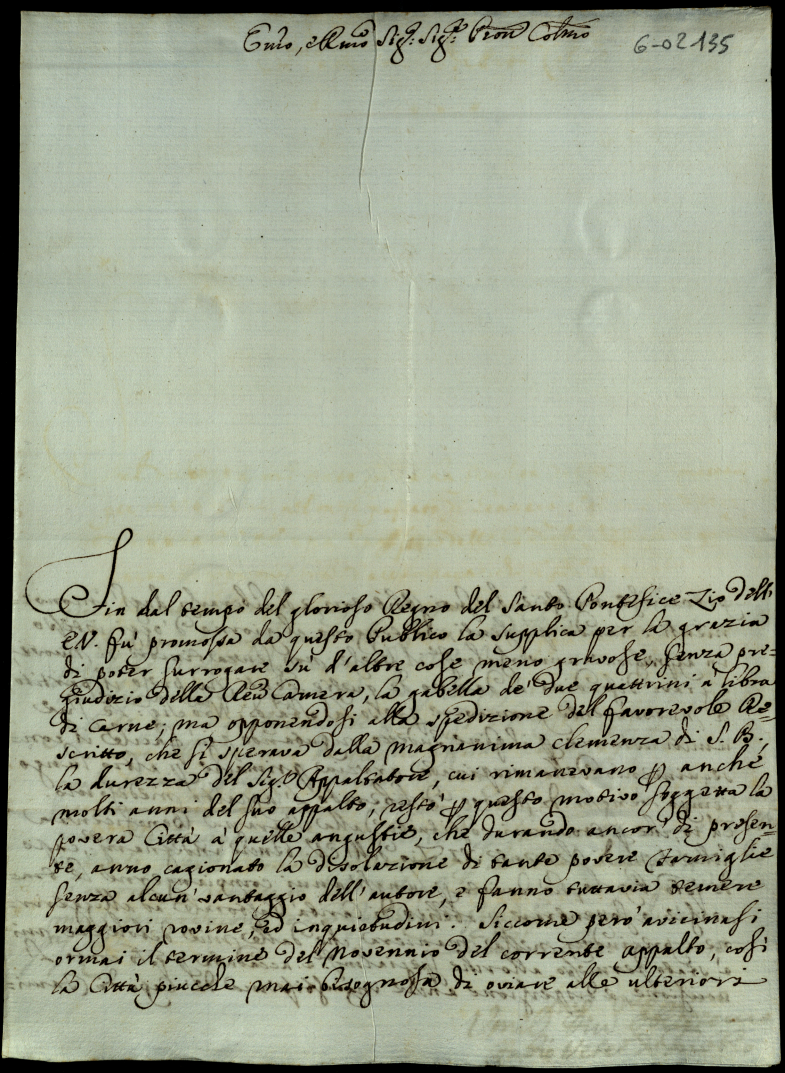 Emo, e Rmo Sig.r Sig.r Pron Colmo
6-02135
Fin dal tempo del glorioso Regno del Santo Pontefice Zio dell'
E.V. fu' promossa da questo Publico la supplica per la grazia
di poter surrogare sù d'altre cose meno gravose, senza pre=
giudizio della Reu Camera, la gabella de' due quattrini à libra
di carne; ma opponendosi alla spedizione del favorevole Re=
scritto, che si sperava dalla magnanima clemenza di S. B.,
la durezza del Sig.r Appaltatore, cui rimanevano p anche
molti anni del suo appalto, restò p questo motivo soggetta la
povera Città à quelle angustie, che durando ancor' di presen=
te, anno cagionato la desolazione di tante povere famiglie
senza alcun' vantaggio dell'autore, e fanno tuttavia temere
maggiori rovine, ed inquietudini. Siccome però avicinasi
ormai il termine del Novennio del corrente appalto, così
la Città piucche mai bisognosa di oviare alle ulteriori